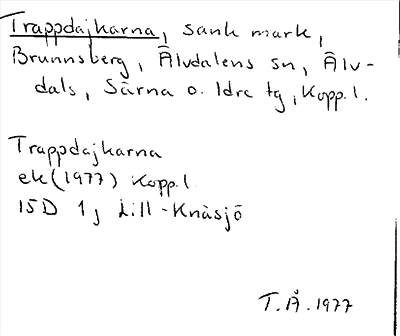 Trappdajkarna, sank mark,
Brunnsberg, Älvdalens sn, Älv-
dals, Särna o. Idre tg, Kopp. l.
Trappdajkarna
ek (1977) Kopp. l
15D 1j Lill-Knäsjö
T.Å. 1977